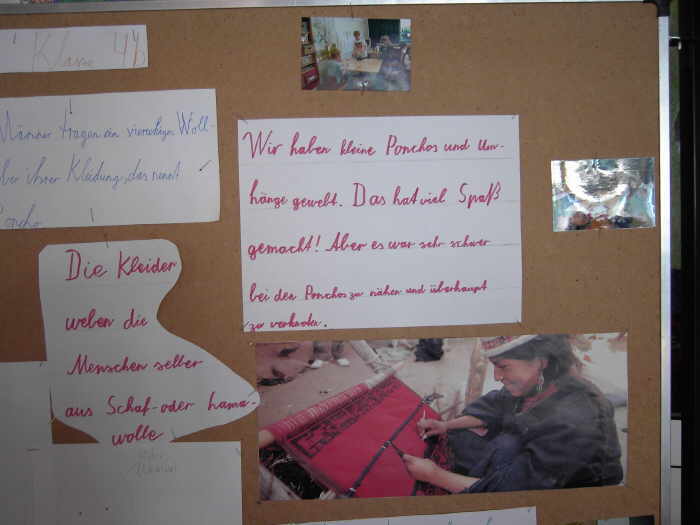 Klasse 4b
Männer tragen ein viereckiges Woll-
über ihrer Kleidung, das nennt
Poncho
Wir haben kleine Ponchos und Um-
hänge gewebt. Das hat viel Spaß
gemacht! Aber es war sehr schwer
bei den Ponchos zu nähen und überhaupt
zu verknoten.
Die Kleider
weben die
Menschen selber
aus Schaf- oder Lama-
wolle